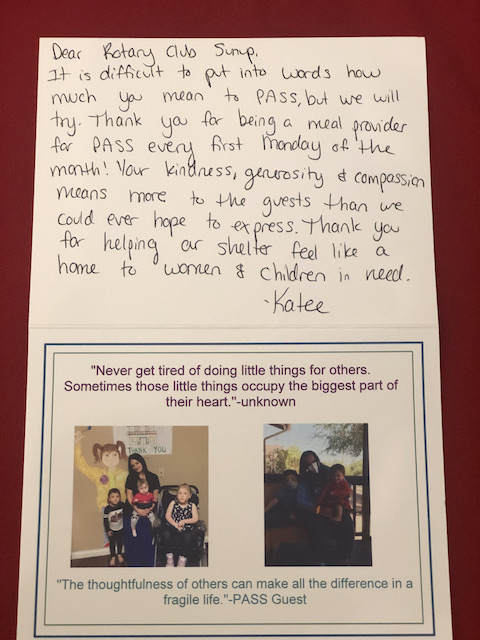 Dear Rotary Club Sunup,
It is difficult to put into words how
much you mean to PASS, but we will
try. Thank you for being a meal provider
for PASS every first Monday of the
month! Your kindness, generosity & compassion
means more to the guests than we
could ever hope to express. Thank you
for helping our shelter feel like a
home to women & children in need.
-Katee
"Never get tired of doing little things for others.
Sometimes those little things occupy the biggest part of
their heart."-unknown
THANK YOU
"The thoughtfulness of others can make all the difference in a
fragile life."-PASS Guest